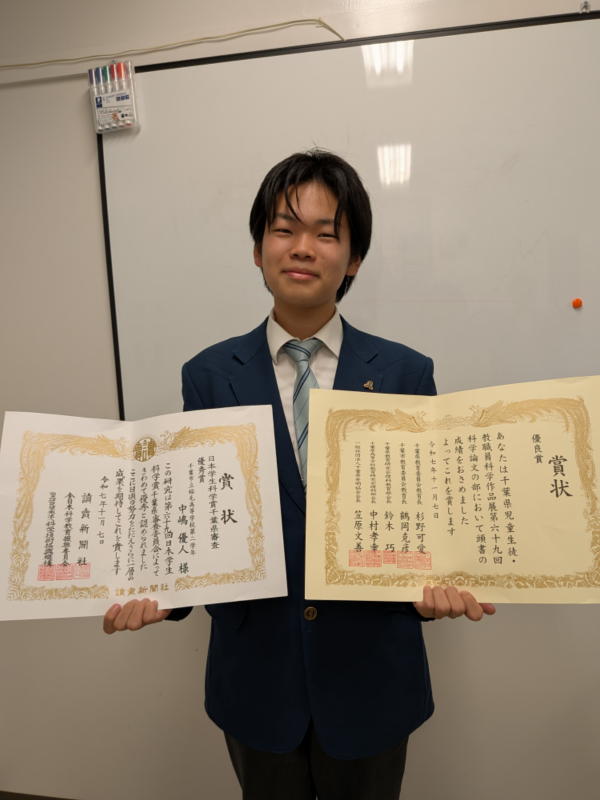 賞状
日本学生科学賞千葉県審査
優秀賞
千葉市立稲毛高等学校第一学年
中嶋優人 様
この研究は第六十九回日本学生
科学賞千葉県審査委員会によって
きわめて優秀と認められました
ここに日頃の努力をたたえさらに一層の
成果を期待してこれを賞します
令和七年十一月七日
読売新聞社
全日本科学教育振興委員会
読売新聞社
賞状
優良賞
あなたは千葉県児童生徒・
教職員科学作品展第六十九回
科学論文の部において頭書の
成績をおさめました
よってこれを賞します
令和七年十一月七日
千葉県教育委員会教育長 杉野可愛
千葉市教育委員会教育長 鶴岡克彦
鈴木巧
中村孝幸
笠原文善